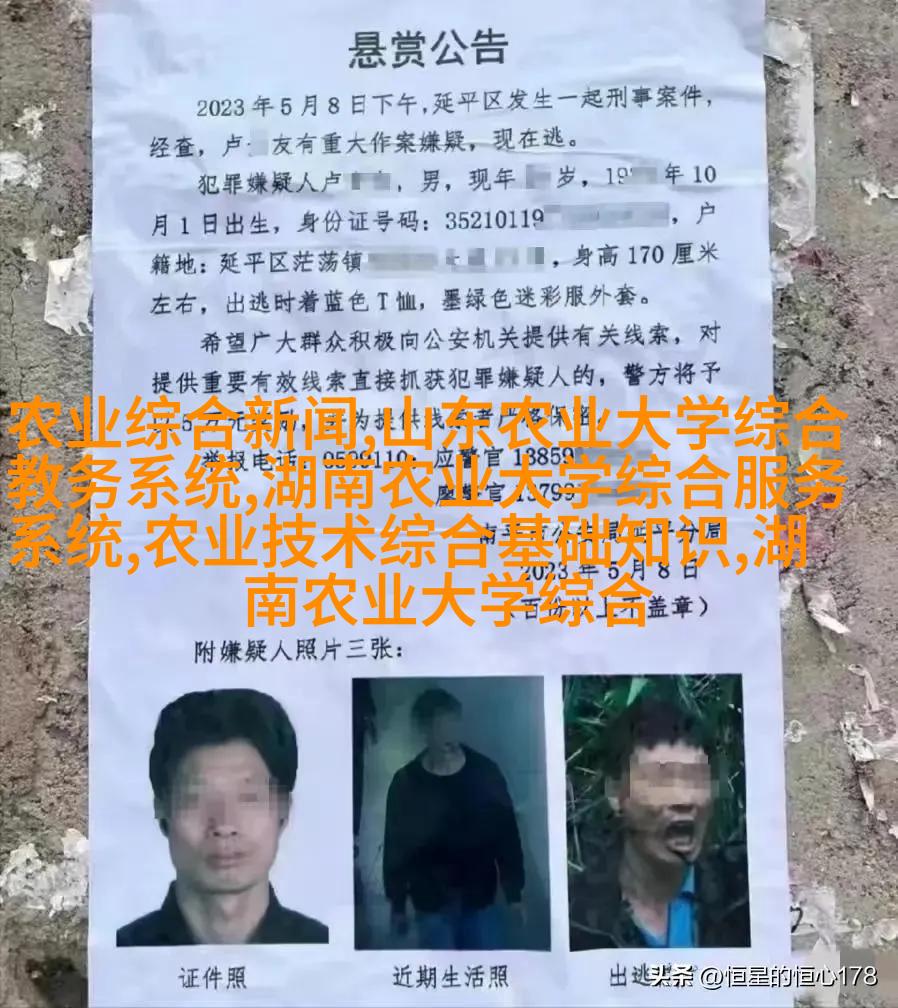 悬赏公告
2023年5月8日下午,延平区发生一起刑事案件,
经查,卢 友有重大作案嫌疑,现在逃。
犯罪嫌疑人卢 ,男,现年 岁,19 年10
月1日出生,身份证号码:35210119 ,户
籍地:延平区茫荡镇 ,身高170厘米
左右,出逃时着蓝色T恤,墨绿色迷彩服外套。
希望广大群众积极向公安机关提供有关线索,对
提供重要有效线索直接抓获犯罪嫌疑人的,警方将予
5万元 为提供线 者严格保密
举报电话:0599110;应警官13859
廖警官13799
南平市公安局延平分局
2023年5月8日
(百份以上不盖章)
农业综合新闻,山东农业大学综合
教务系统,湖南农业大学综合服务
系统,农业技术综合基础知识,湖
南农业大学综合
附嫌疑人照片三张:
证件照 近期生活照 出逃
头条 @恒星的恒心178